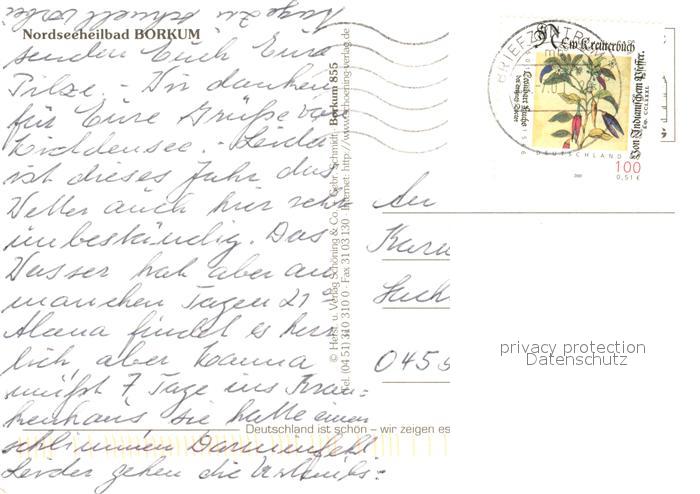 Nordseeheilbad BORKUM
senden Euch Eure
Pilze. - Wir danken
für Eure Grüße vo
- Leider
ist dieses Jahr das
Wetter auch hier sehr
unbeständig. Das
Wasser hat aber an
manchen Tagen 21°
Alana findet es herr
lich, aber Hanna
mußt 7 Tage ins Kran-
kenhaus sie hatte einen
schlimmen Darminfekt
Leider gehen die Urlaubs-
tage zu schnell vorbei
© Herst. u. Verlag Schöning & Co. + Gebr. Schmidt · Borkum 855
Tel. (04 51) 310 310 0 · Fax 31 03 130 · Internet: http://www.schoening-verlag.de
Deutschland ist schön – wir zeigen es
BRIEFZENTRUM
New Kreüterbüch
Leonhart Fuchs
Von Indianischem Pfeffer.
Cap. CCLXXXI.
DEUTSCHLAND
100
0,51 €
An
0455
privacy protection
Datenschutz